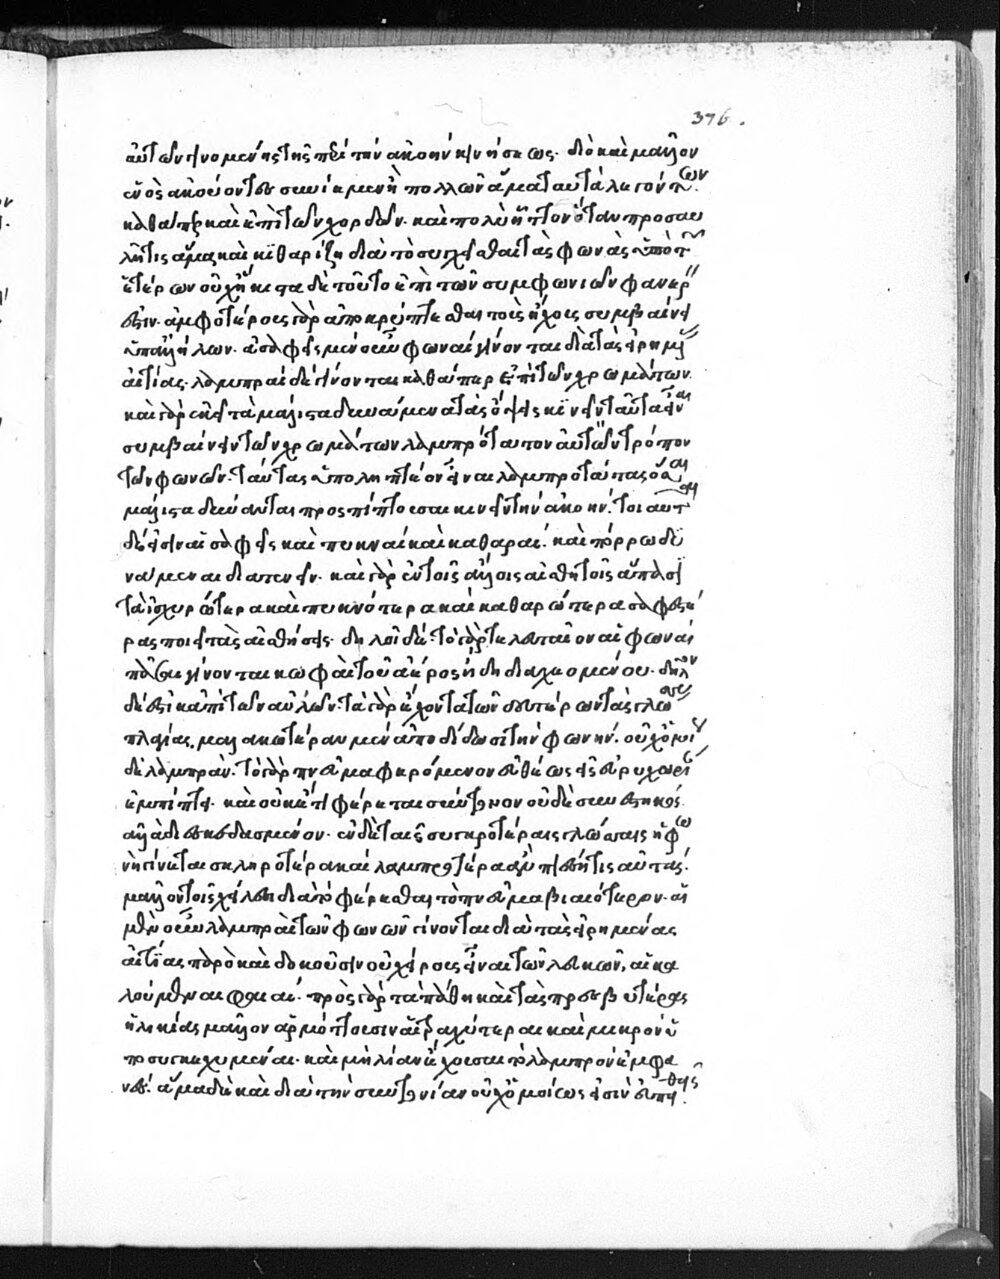 αὐτῶν γινομένης τῆς περὶ τὴν ἀκοὴν κινήσεως. διὸ καὶ μᾶλλον
ἑνὸς ἀκούοντες συνίεμεν ἢ πολλῶν ἅμα ταυτὰ λεγόντων.
καθάπερ καὶ ἐπὶ τῶν χορδῶν. καὶ πολὺ ἧττον ὅταν προσαυ
λῆ τις ἅμα καὶ κιθαρίζη διὰ τὸ συγχεῖσθαι τὰς φωνὰς ὑπὸ τῶν
ἑτέρων οὐχ ἥκιστα δὲ τοῦτο ἐπὶ τῶν συμφωνιῶν φανερόν
ἐστιν. ἀμφοτέρους γὰρ ἀποκρύπτεσθαι τοὺς ἤχους συμβαίνει
ὑπ' ἀλλήλων. ἀσαφεῖς μὲν οὖν φωναὶ γίνονται διὰ τὰς εἰρημένας
αἰτίας. λαμπραὶ δὲ γίνονται καθάπερ ἐπὶ τῶν χρωμάτων.
καὶ γὰρ ἐκεῖ τὰ μάλιστα δυνάμενα τὰς ὄψεις κινεῖν ταῦτα εἶναι
συμβαίνει τῶν χρωμάτων λαμπρότατον αὐτῶν τρόπον
τῶν φωνῶν. ταύτας ὑποληπτέον εἶναι λαμπροτάτας ὅσαι
μάλιστα δύνανται προσπίπτουσαι κινεῖν τὴν ἀκοήν. τοιαῦται
δέ εἰσιν αἱ σαφεῖς καὶ πυκναὶ καὶ καθαραί. καὶ πόρρω δυ
νάμεναι διατείνειν. καὶ γὰρ ἐν τοῖς ἄλλοις αἰσθητοῖς ἅπασι
τὰ ἰσχυρότερα καὶ πυκνότερα καὶ καθαρώτερα σαφεστέ
ρας ποιεῖ τὰς αἰσθήσεις. δηλοῖ δέ. τὸ γὰρ τελευταῖον αἱ φωναὶ
πᾶσαι γίνονται κωφαὶ τοῦ ἀέρος ἤδη διαχεομένου. δῆλον
δέ ἐστι κἀπὶ τῶν αὐλῶν. τὰ γὰρ ἔχοντα τῶν ζευγέρων τὰς γλώσσας
πλαγίας. μαλακωτέραν μὲν ἀποδίδωσι τὴν φωνήν. οὐχ ὁμοίως
δὲ λαμπράν. τὸ γὰρ πνεῦμα φερόμενον εὐθέως εἰς εὐρυχωρίαν
ἐμπίπτει. καὶ οὐκέτι φέρεται σύντονον οὐδὲ συνεστηκός.
ἀλλὰ διεσκεδασμένον. ἐν δὲ ταῖς συγκροτέραις γλώσσαις ἡ φω
νὴ γίνεται σκληροτέρα καὶ λαμπροτέρα ἂν πιέσῃ τις αὐτὰς.
μᾶλλον τοῖς χείλεσι διὰ τὸ φέρεσθαι τὸ πνεῦμα βιαιότερον. αἱ
μὲν οὖν λαμπραὶ τῶν φωνῶν γίνονται διὰ τὰς εἰρημένας
αἰτίας παρὸ καὶ δοκοῦσιν οὐ χείρους εἶναι τῶν λευκῶν, αἱ κα
λούμεναι φαιαί. πρὸς γὰρ τὰ πάθη καὶ τὰς πρεσβυτέρας
ἡλικίας μᾶλλον ἁρμόττουσιν αἱ τραχύτεραι καὶ μικρὸν ὑ
ποσυγκεχυμέναι. καὶ μὴ λίαν ἔχουσαι τὸ λαμπρὸν ἐμφα
νές. ἅμα δὲ καὶ διὰ τὴν συντονίαν οὐχ ὁμοίως εἰσὶν εὐπειθεῖς.